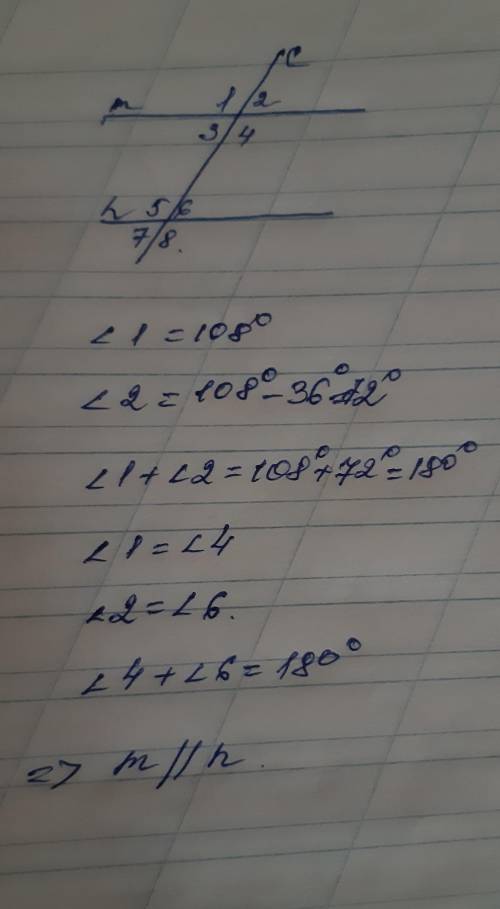 c
m 1 2
3 4
n 5 6
7 8.
∠1 = 108°
∠2 = 108° - 36° = 72°
∠1 + ∠2 = 108° + 72° = 180°
∠1 = ∠4
∠2 = ∠6.
∠4 + ∠6 = 180°
=> m || n.